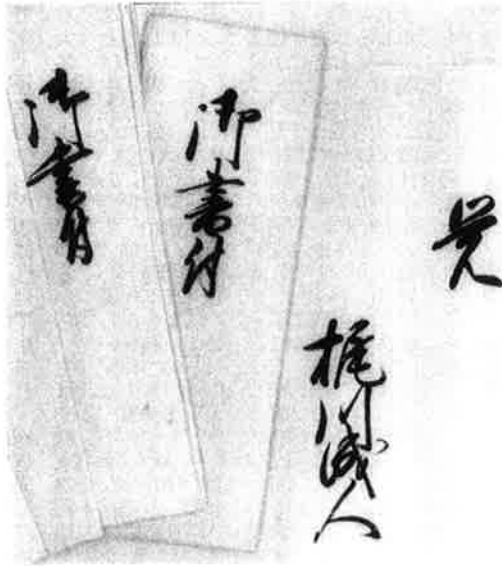 覚
梶川
御書付
御書付